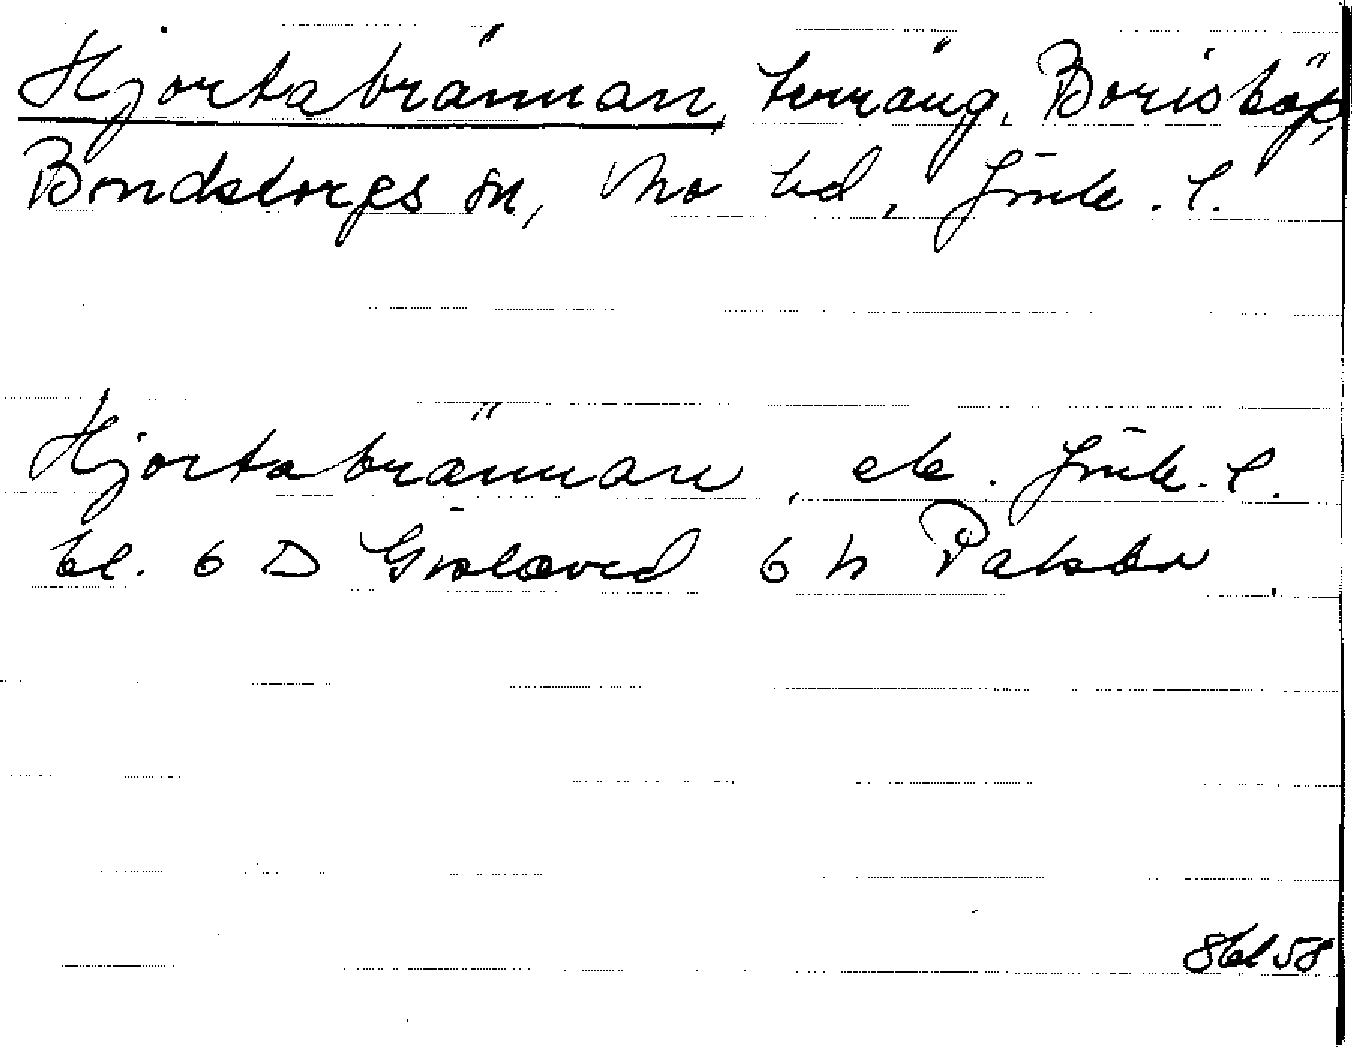 Hjortabrännan, terräng, Borisköp,
Bondstorps sn, Mo hd, Jönk. l.
Hjortabrännan, ek. Jönk. l.
bl. 6 D Gislaved 6 h Palsbo
bl 58